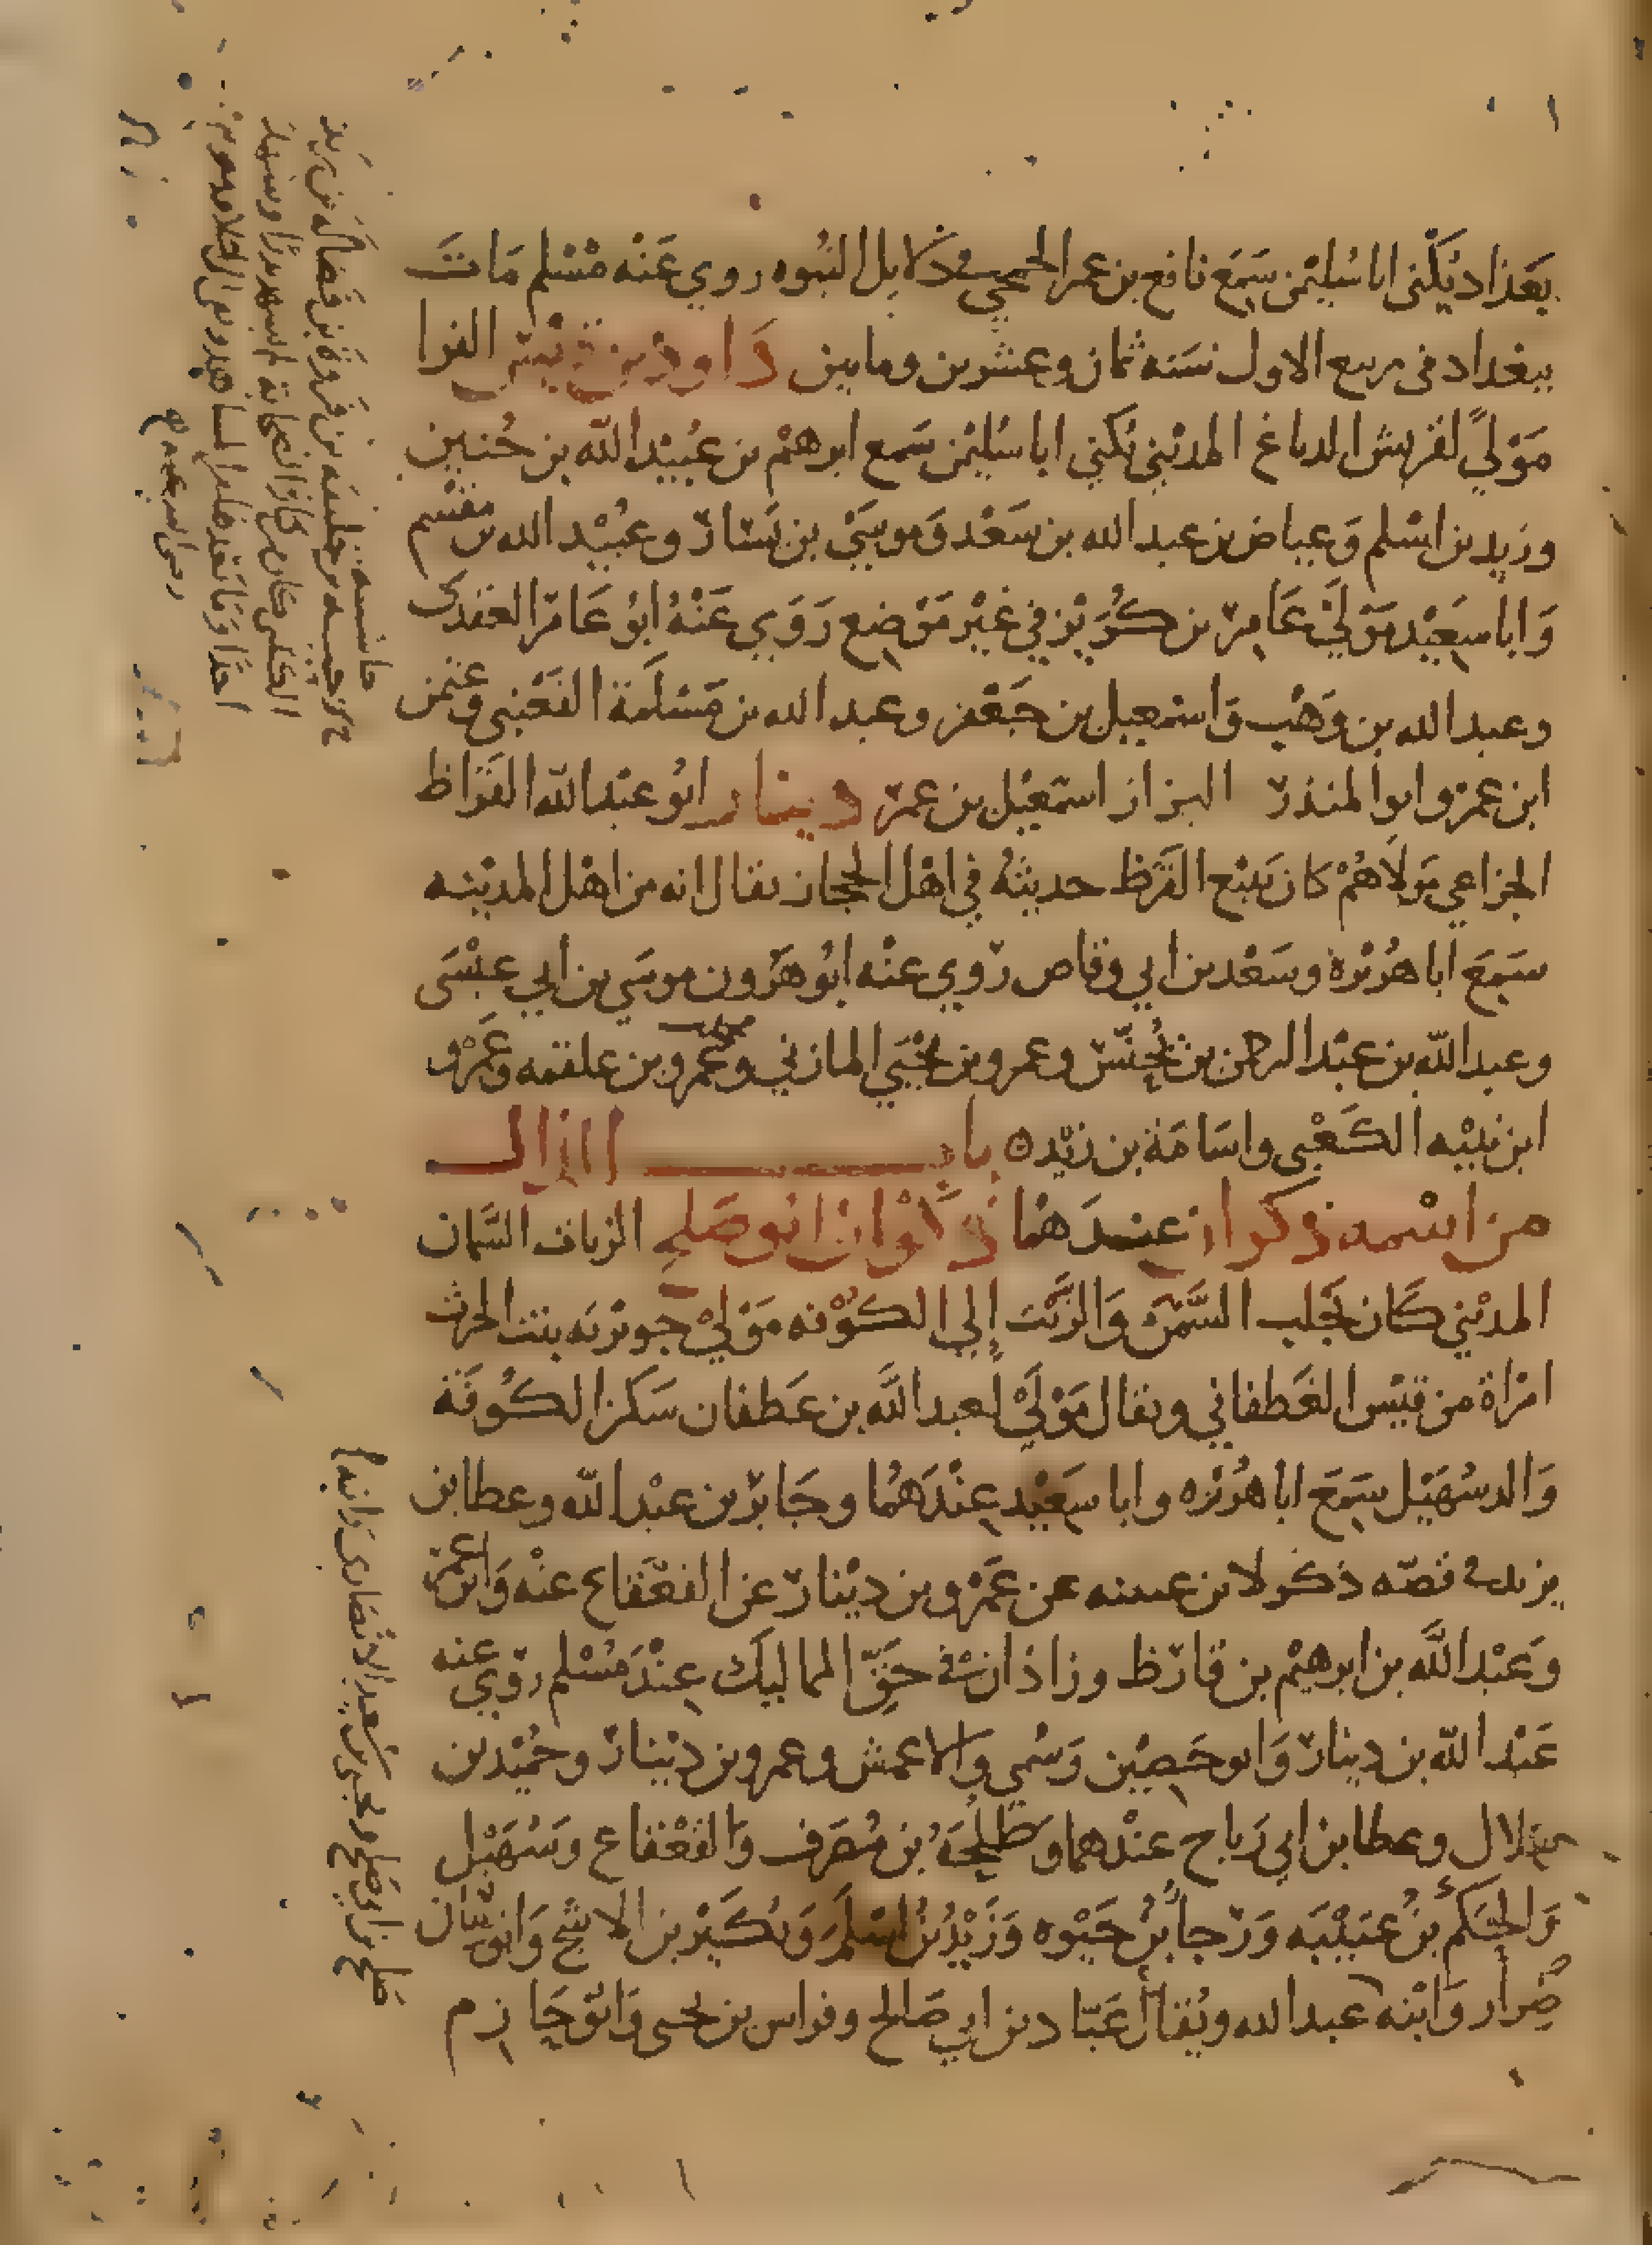 بغداد يكنى ابا سليمن سمع نافع بن عمر الجمحي في دلايل النبوه روي عنه مسلم مات
ببغداد في ربيع الاول سنه ثمان وعشرين ومايتين داود بن قيس الفرا
مولى لقريش الدباغ المديني يكني ابا سليمن سمع ابرهيم بن عبيد الله بن حنين
وزيد بن اسلم وعياض بن عبد الله بن سعد وموسى بن يسار وعبيد الله بن مقسم
وابا سعيد مولى عامر بن كريز في غير موضع روي عنه ابو عامر العقدي
وعبد الله بن وهب واسمعيل بن جعفر وعبد الله بن مسلمة القعنبي وعثمن
ابن عمر وابو المنذر البزاز اسمعيل بن عمر دينار ابو عبد الله القراظ
الخزاعي مولاهم كان يبيع القرظ حديثه في اهل الحجاز يقال انه من اهل المدينه
سمع ابا هريرة وسعد بن ابي وقاص روي عنه ابو هرون موسي بن ابي عيسى
وعبد الله بن عبد الرحمن بن يحنس وعمرو بن يحيي المازني ومحمد بن عمرو بن علقمه وعمر
ابن نبيه الكعبي واسامة بن زيد ه باب الذال
من اسمه ذكوان عندهما ذكوان ابو صلح الزيات السمان
المديني كان يجلب السمن والزيت إلي الكوفه مولي جويريه بنت الحرث
امراة من قيس الغطفاني ويقال مولى لعبد الله بن غطفان سكن الكوفة
والد سهيل سمع ابا هريره وابا سعيد عندهما وجابر بن عبد الله وعطا بن
يزيد في قصه ذكر لابن عيينه عن عمرو بن دينار عن القعقاع عنه وابن عمر
وعبد الله بن ابرهيم بن قارظ وزاذان في حق المماليك عند مسلم روي عنه
عبد الله بن دينار وابو حصين وسمي والاعمش وعمرو بن دينار وحميد بن
هلال وعطا بن ابي رباح عندهما وطلحة بن مصرف والقعقاع وسهيل
والحكم بن عتيبه ورجا بن حيوه وزيد بن اسلم وبكير بن الاشج وابو سنان
ضرار وابنه عبد الله ويقال عباد بن ابي صالح وفراس بن يحيى وابو حازم
حاشية
صلح بن ابي صلح ويحيى بن سعيد الانصارى وابنه